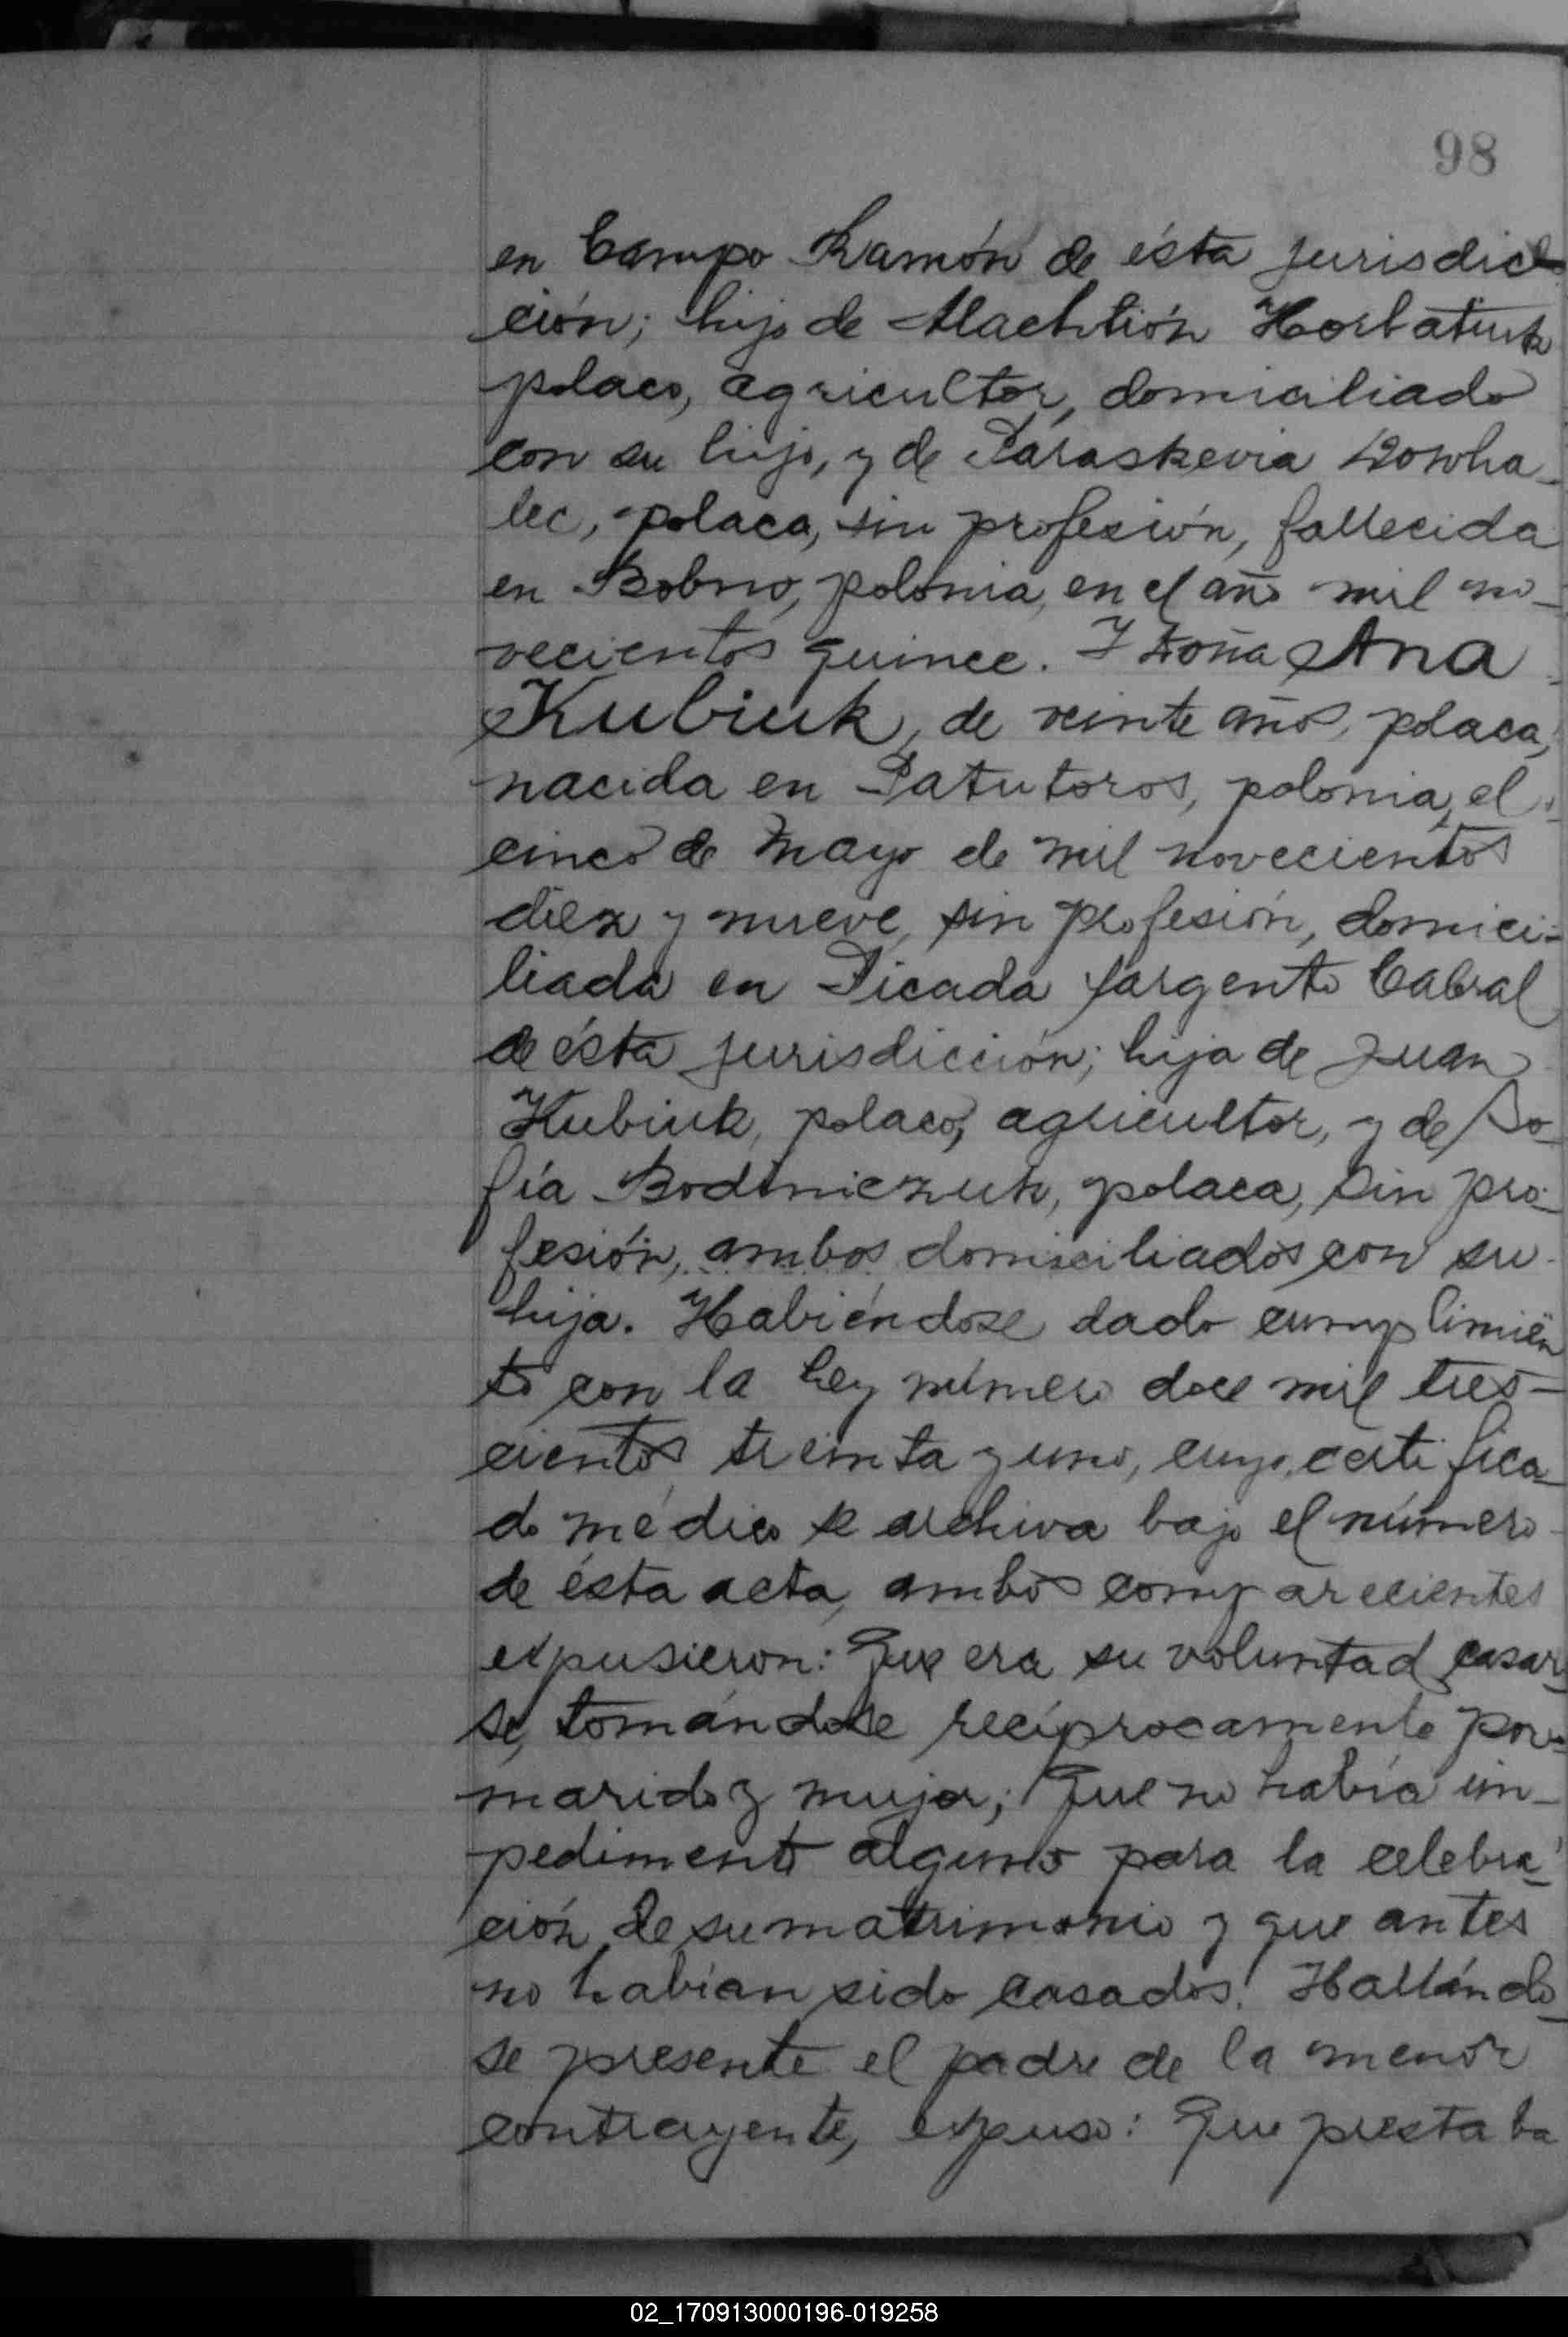 98
en Campo Ramón de ésta jurisdic-
ción; hijo de Machtión Horbatiuk
polaco, agricultor, domiciliado
con su hijo, y de Paraskevia Dowha-
lec, polaca, sin profesión, fallecida
en Bobno, polonia, en el año mil no-
vecientos quince. Y Doña Ana
Kubiuk, de veinte años, polaca,
nacida en Patutoros, polonia, el
cinco de Mayo de mil novecientos
diez y nueve, sin profesión, domici-
liada en Picada Sargento Cabral
de ésta jurisdicción; hija de Juan
Kubiuk, polaco, agricultor, y de So-
fía Bodiniczuk, polaca, sin pro-
fesión, ambos domiciliados con su
hija. Habiéndose dado cumplimien
to con la Ley número doce mil tres-
cientos treinta y uno, cuyo certifica-
do médico se archiva bajo el número
de ésta acta, ambos comparecientes
expusieron: Que era su voluntad casar-
se, tomándose recíprocamente por
marido y mujer; Que no había im-
pedimento alguno para la celebra-
ción de su matrimonio y que antes
no habían sido casados. Hallándo-
se presente el padre de la menor
contrayente, expuso: Que prestaba
02_170913000196-019258